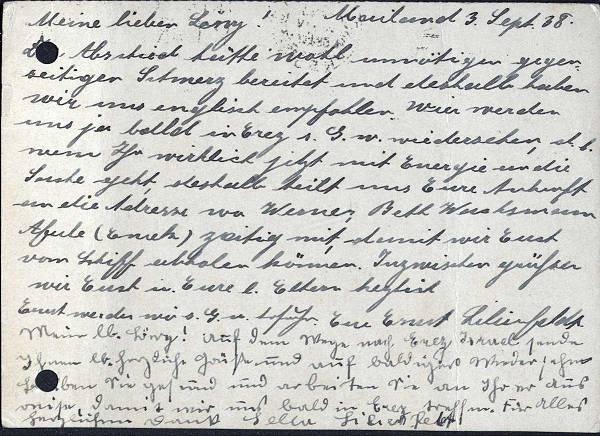 Meine lieben Löwy! Mailand 3. Sept. 38.
Abschied hätte wohl unnötigen gegen-
seitigen Schmerz bereitet und deshalb haben
wir uns englisch empfohlen. Wir werden
uns ja bald in Erez s. G. w. wiedersehen, d. h.
wenn Ihr wirklich jetzt mit Energie an die
Sache geht, deshalb teilt uns Eure Ankunft
an die Adresse von Werner, Beth Wachsmann
Afule (Emek) zeitig mit, damit wir Euch
vom Schiff abholen können. Inzwischen grüssen
wir Euch u. Eure l. Eltern herzlich
Euer Ernst Lilienfeld
Mein lb. Löwy! auf dem Wege nach Erez Israel sende
Ihnen lb. herzliche Grüße und auf baldiges Wiedersehn
bleiben Sie gesund und arbeiten Sie an Ihrer Aus
reise damit wir uns bald in Erez treffen. Für alles
herzlichen Dank Lilienfeld